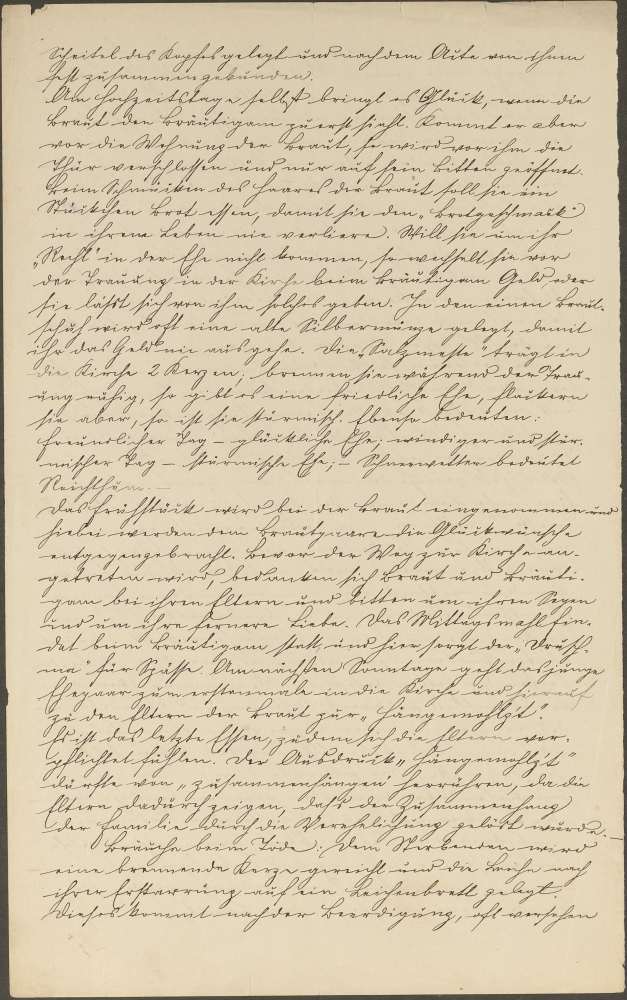 Scheitel des Kopfes gelegt und nach dem Akte von ihnen
fest zusammengebunden.
Am Hochzeitstage selbst bringt es Glück, wenn die
Braut den Bräutigam zuerst sieht. Kommt er aber
vor die Wohnung der Braut, so wird vor ihm die
Thür verschlossen und nur auf sein Bitten geöffnet.
Beim Schmücken des Haares der Braut soll sie ein
Stückchen Brot essen, damit sie den „Brotgeschmack"
in ihrem Leben nie verliere. Will sie um ihr
„Recht" in der Ehe nicht kommen, so wechselt sie vor
der Trauung in der Kirche beim Bräutigam Geld oder
sie läßt sich von ihm solches geben. In den einen Braut-
schuh wird oft eine alte Silbermünze gelegt, damit
ihr das Geld nie ausgehe. Die „Salzmeste" trägt in
die Kirche 2 Kerzen; brennen sie während der Trau-
ung ruhig, so gibt es eine friedliche Ehe, flackern
sie aber, so ist sie stürmisch. Ebenso bedeuten:
freundlicher Tag – glückliche Ehe; windiger und stür-
mischer Tag – stürmische Ehe; – Schneewetter bedeutet
Reichthum. –
Das Frühstück wird bei der Braut eingenommen und
hiebei werden dem Brautpaare die Glückwünsche
entgegengebracht. Bevor der Weg zur Kirche an-
getreten wird, bedanken sich Braut und Bräuti-
gam bei ihren Eltern und bitten um ihren Segen
und um ihre fernere Liebe. Das Mittagsmahl fin-
det beim Bräutigam statt, und hier sorgt der „Drusch-
ma" für Späße. Am nächsten Sonntage geht das junge
Ehepaar zum erstenmale in die Kirche und hierauf
zu den Eltern der Braut zur „Hängemohlzt".
Es ist das letzte Essen, zu dem sich die Eltern ver-
pflichtet fühlen. Der Ausdruck „Hängemohlzt"
dürfte von „zusammenhängen" herrühren, da die
Eltern dadurch zeigen, daß der Zusammenhang
der Familie durch die Verehelichung gelöst wurde. –
Bräuche beim Tode: Dem Sterbenden wird
eine brennende Kerze gereicht und die Leiche nach
ihrer Erstarrung auf ein Leichenbrett gelegt.
Dieses kommt nach der Beerdigung, oft versehen